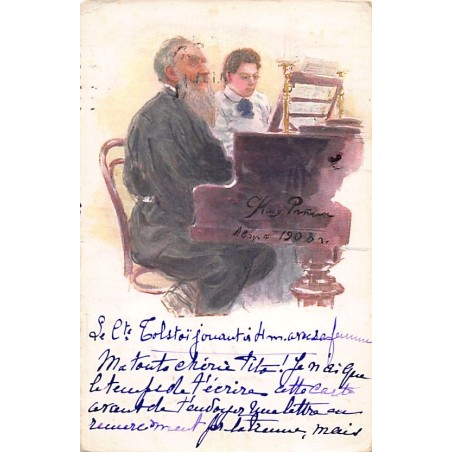 1908 г.
Le Cte Tolstoï jouant à 4 m. avec sa femme
Ma toute chérie Tita! Je n'ai que
le temps de t'écrire cette carte
avant de t'envoyer une lettre en
remerciement pr la tienne, mais